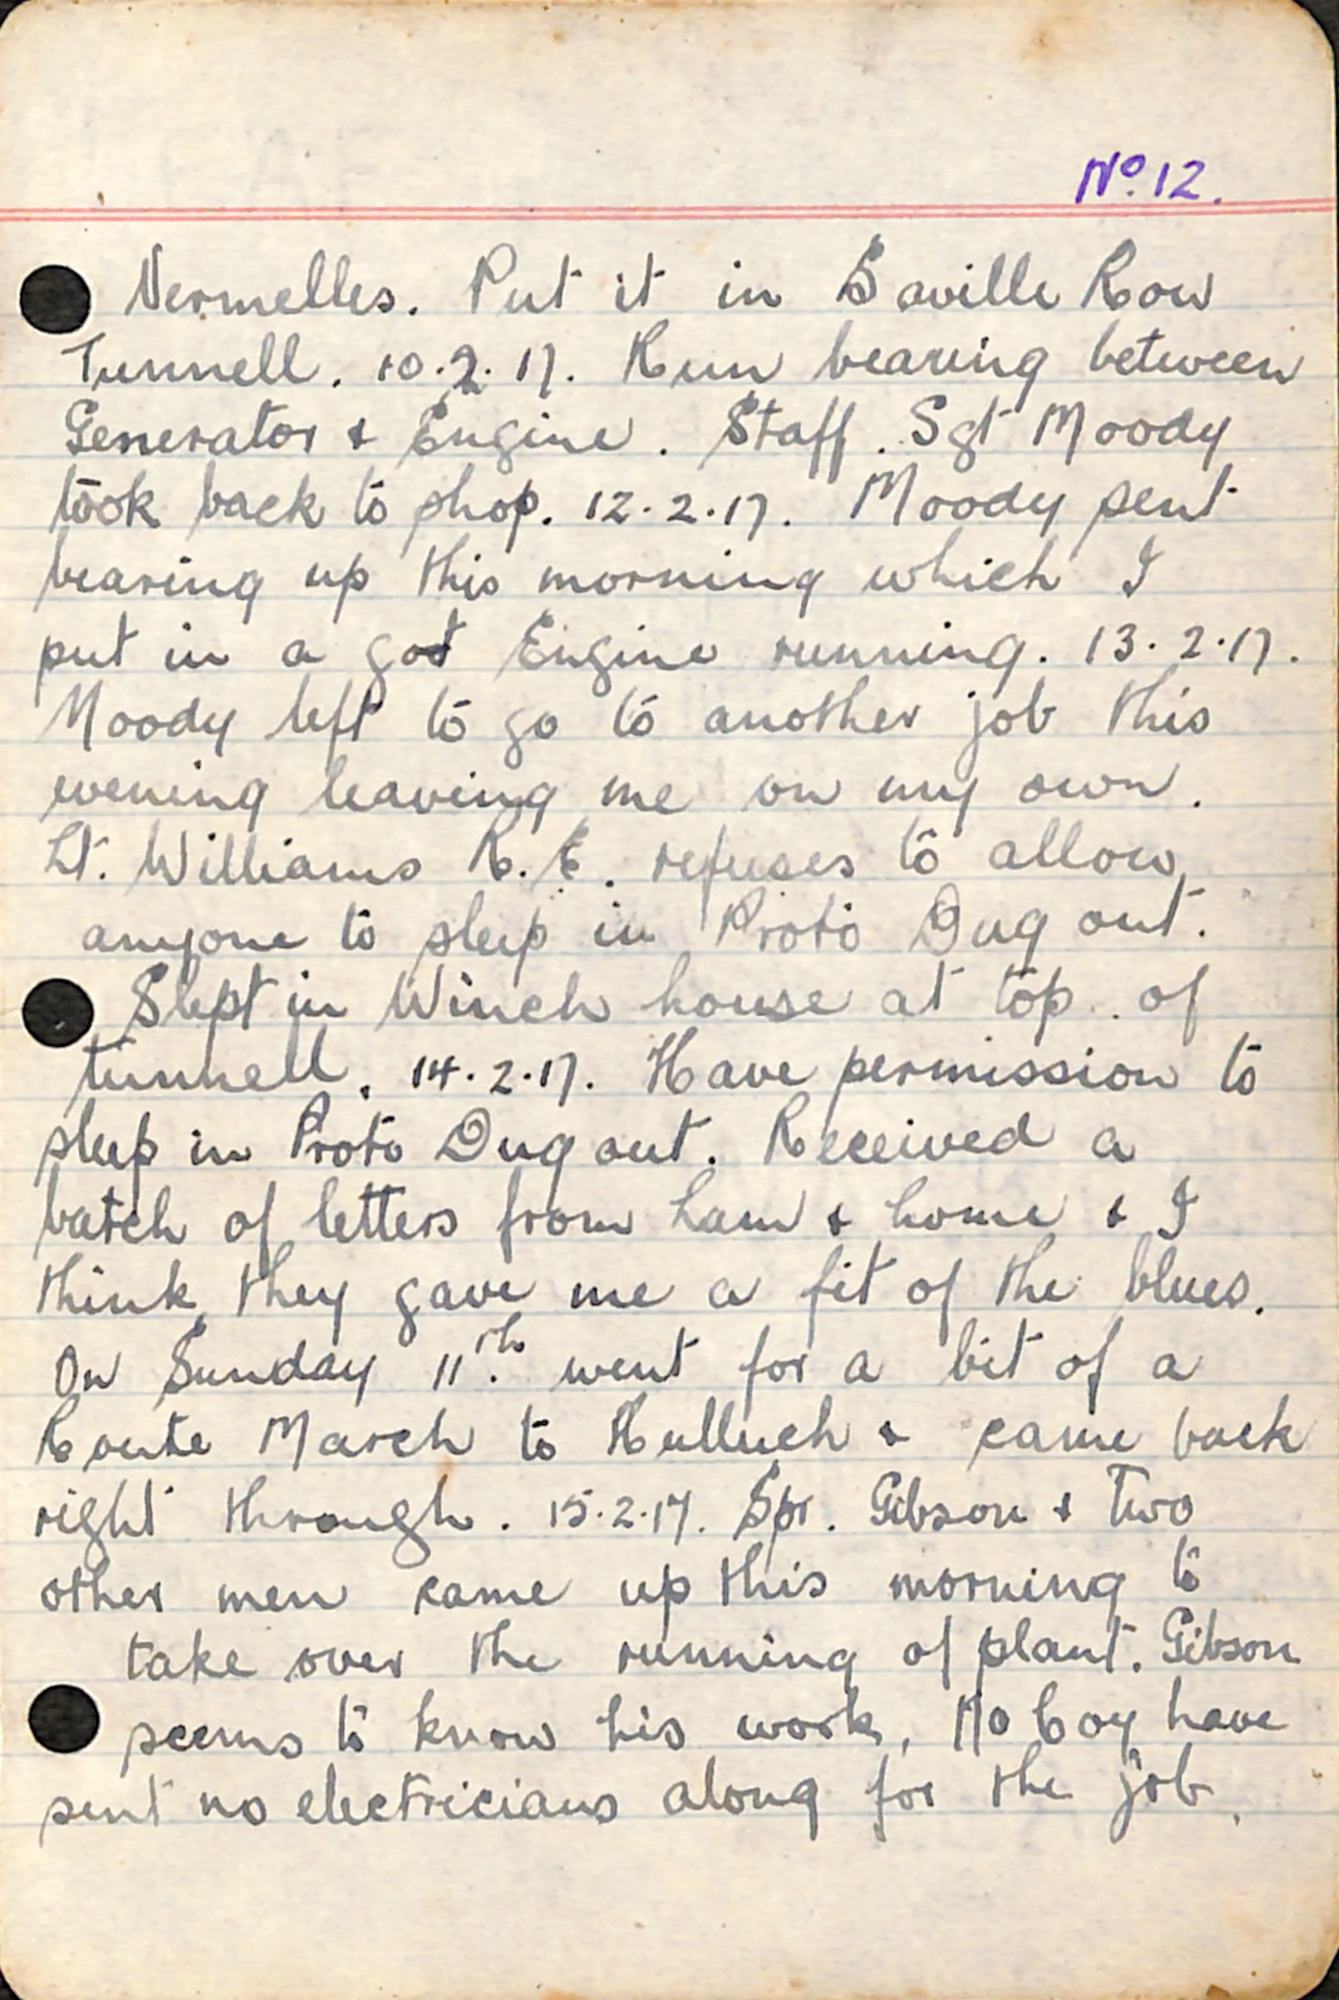 No. 12.
Vermelles. Put it in Saville Row
Tunnell. 10.2.17. Run bearing between
Generator & Engine. Staff. Sgt Moody
took back to shop. 12.2.17. Moody sent
bearing up this morning which I
put in a got Engine running. 13.2.17.
Moody left to go to another job this
evening leaving me on my own.
Lt. Williams R.E. refuses to allow
anyone to sleep in Proto Dug out.
Slept in Winch house at top of
tunnell. 14.2.17. Have permission to
sleep in Proto Dug out. Received a
batch of letters from Lam & home & I
think they gave me a fit of the blues.
On Sunday 11th. went for a bit of a
Route March to Hulluch & came back
right through. 15.2.17. Spr. Gibson & Two
other men came up this morning to
take over the running of plant. Gibson
seems to know his work, No Coy have
sent no electricians along for the job.